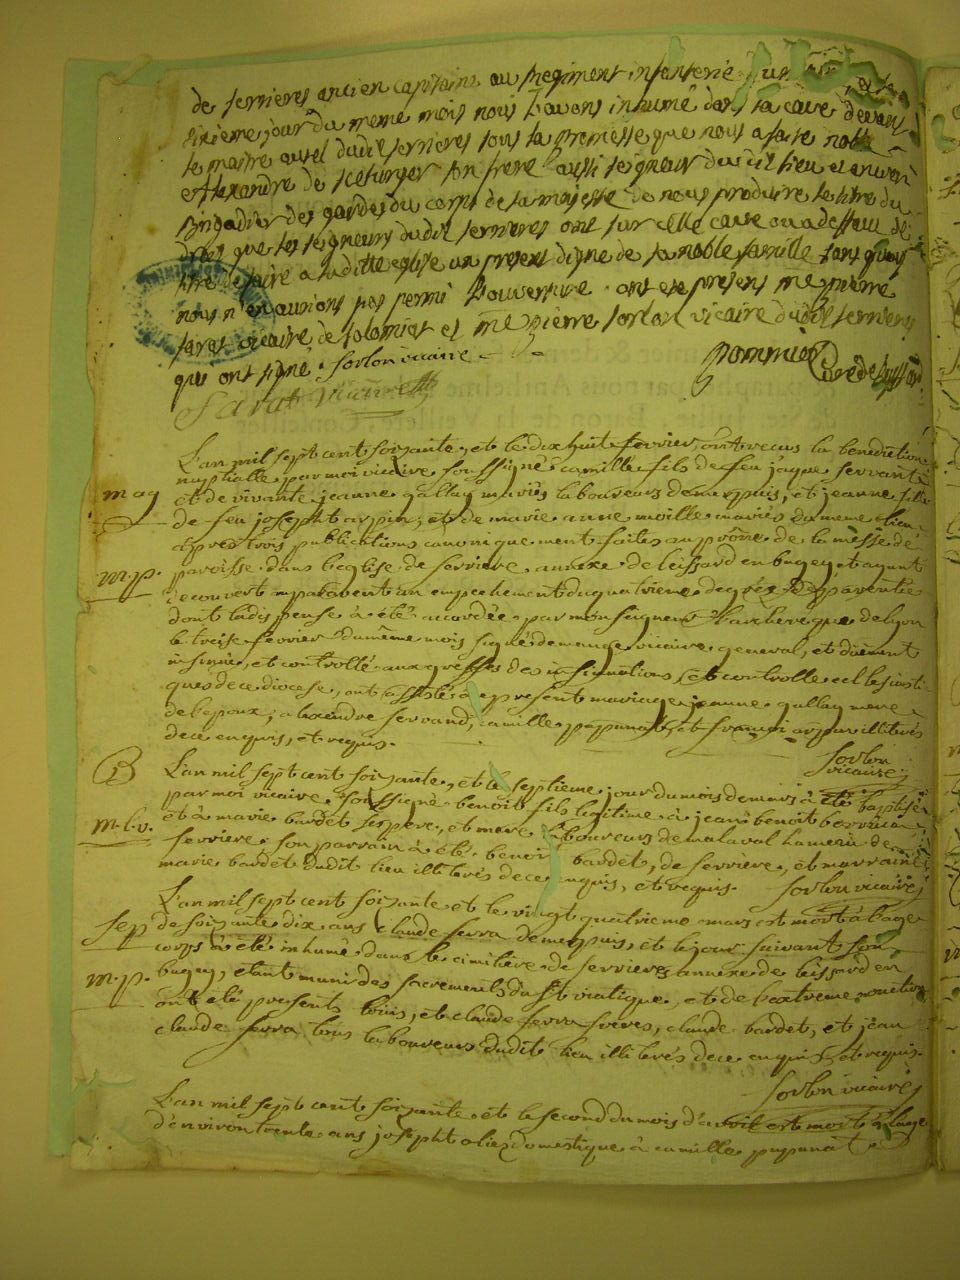 de serrieres ancien capitaine au Regiment infanterie
sixieme jour du meme mois nous l'avons inhumé dans la cave devant
le maitre autel dudit serrieres sous la promesse que nous a faite noble
Alexandre de son frere aussi seigneur dudit lieu
Brigadier des gardes du corps de sa majesté de nous produire le titre du
droit que les seigneurs dudit serrieres ont sur elle cave ou a deffaut de
titre de faire a ladite eglise un present digne de sa noble famille sans quoy
nous n'en aurions pas permi l'ouverture ont eté présens me pierre
sarat vicaire de solomiat et me pierre sorlon vicaire dudit serrieres
qui ont signé. sorlon vicaire
pommier curé de
Sarat vicaire
L'an mil sept cent soixante, et le dix huit fevrier ont recus la benediction
nuptialle par moi vicaire soussigné camille fils de feu jaque servant
mag et de vivante jeanne gallay mariés laboureurs demerpuis, et jeanne fille
de feu joseph arpin, et de marie anne mariés du meme lieu
apres trois publications canoniquement faites au prône de la messe de
m.p. paroisse dans l'eglise de serriere annexe de leissard en bugey, et ayant
decouvert auparavent un empechement du quatrieme degrez de parentée
dont la dispense à été accordée par monseigneur l'archeveque de lyon
le treize fevrier du même mois signé vicaire general, et duement
insinué, et controllé aux greffes des insinuations, et controlle ecclesiasti
ques de ce diocese, ont assistés à present mariage jeanne gallay mere
de l'epoux, alexendre servand, camille pupunat, et françoi arpin illiterés
de ce enquis, et requis.
sorlon
vicaire
B L'an mil sept cent soixante, et le septieme jour du mois de mars à été baptisé
par moi vicaire soussigné benoit fils legitime à jean benoit
m.l.v. et à marie bardet ses pere, et mere laboureurs de malaval hameau de
serriere, son parrain à été benoit bardet, de serriere, et marraine
marie bardet dudit lieu illiterés de ce enquis, et requis. sorlon vicaire
L'an mil sept cent soixante et le vingt quatrieme mars est mort à l'age
sep de soixante dix ans claude serra demerpuis, et le jour suivant son
corps à été inhumé dans le cimitière de serrieres annexe de leissard en
m.p. bugey, etant muni des sacrements du st viatique, et de l'extreme onction
ont été presents louis, et claude serra freres, claude bardet, et jean
claude serra tous laboureurs dudit lieu illiterés de ce enquis, et requis.
sorlon vicaire
L'an mil sept cent soixante et le second du mois d'avril est mort à l'age
d'environ trente ans joseph domestique à camille pupunat